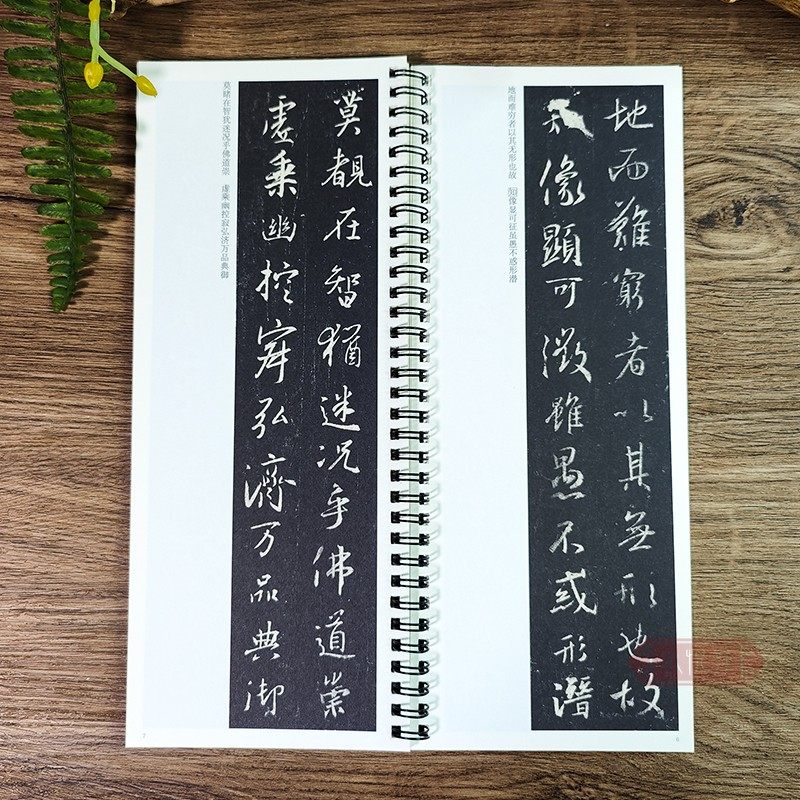 地而難窮者以其無形也故
像顯可徵雖愚不惑形潛
地而难穷者以其无形也故 知像显可征虽愚不惑形潜
6
莫覩在智猶迷況乎佛道崇
虛乘幽控寂弘濟万品典御
莫睹在智犹迷况乎佛道崇 虚乘幽控寂弘济万品典御
7